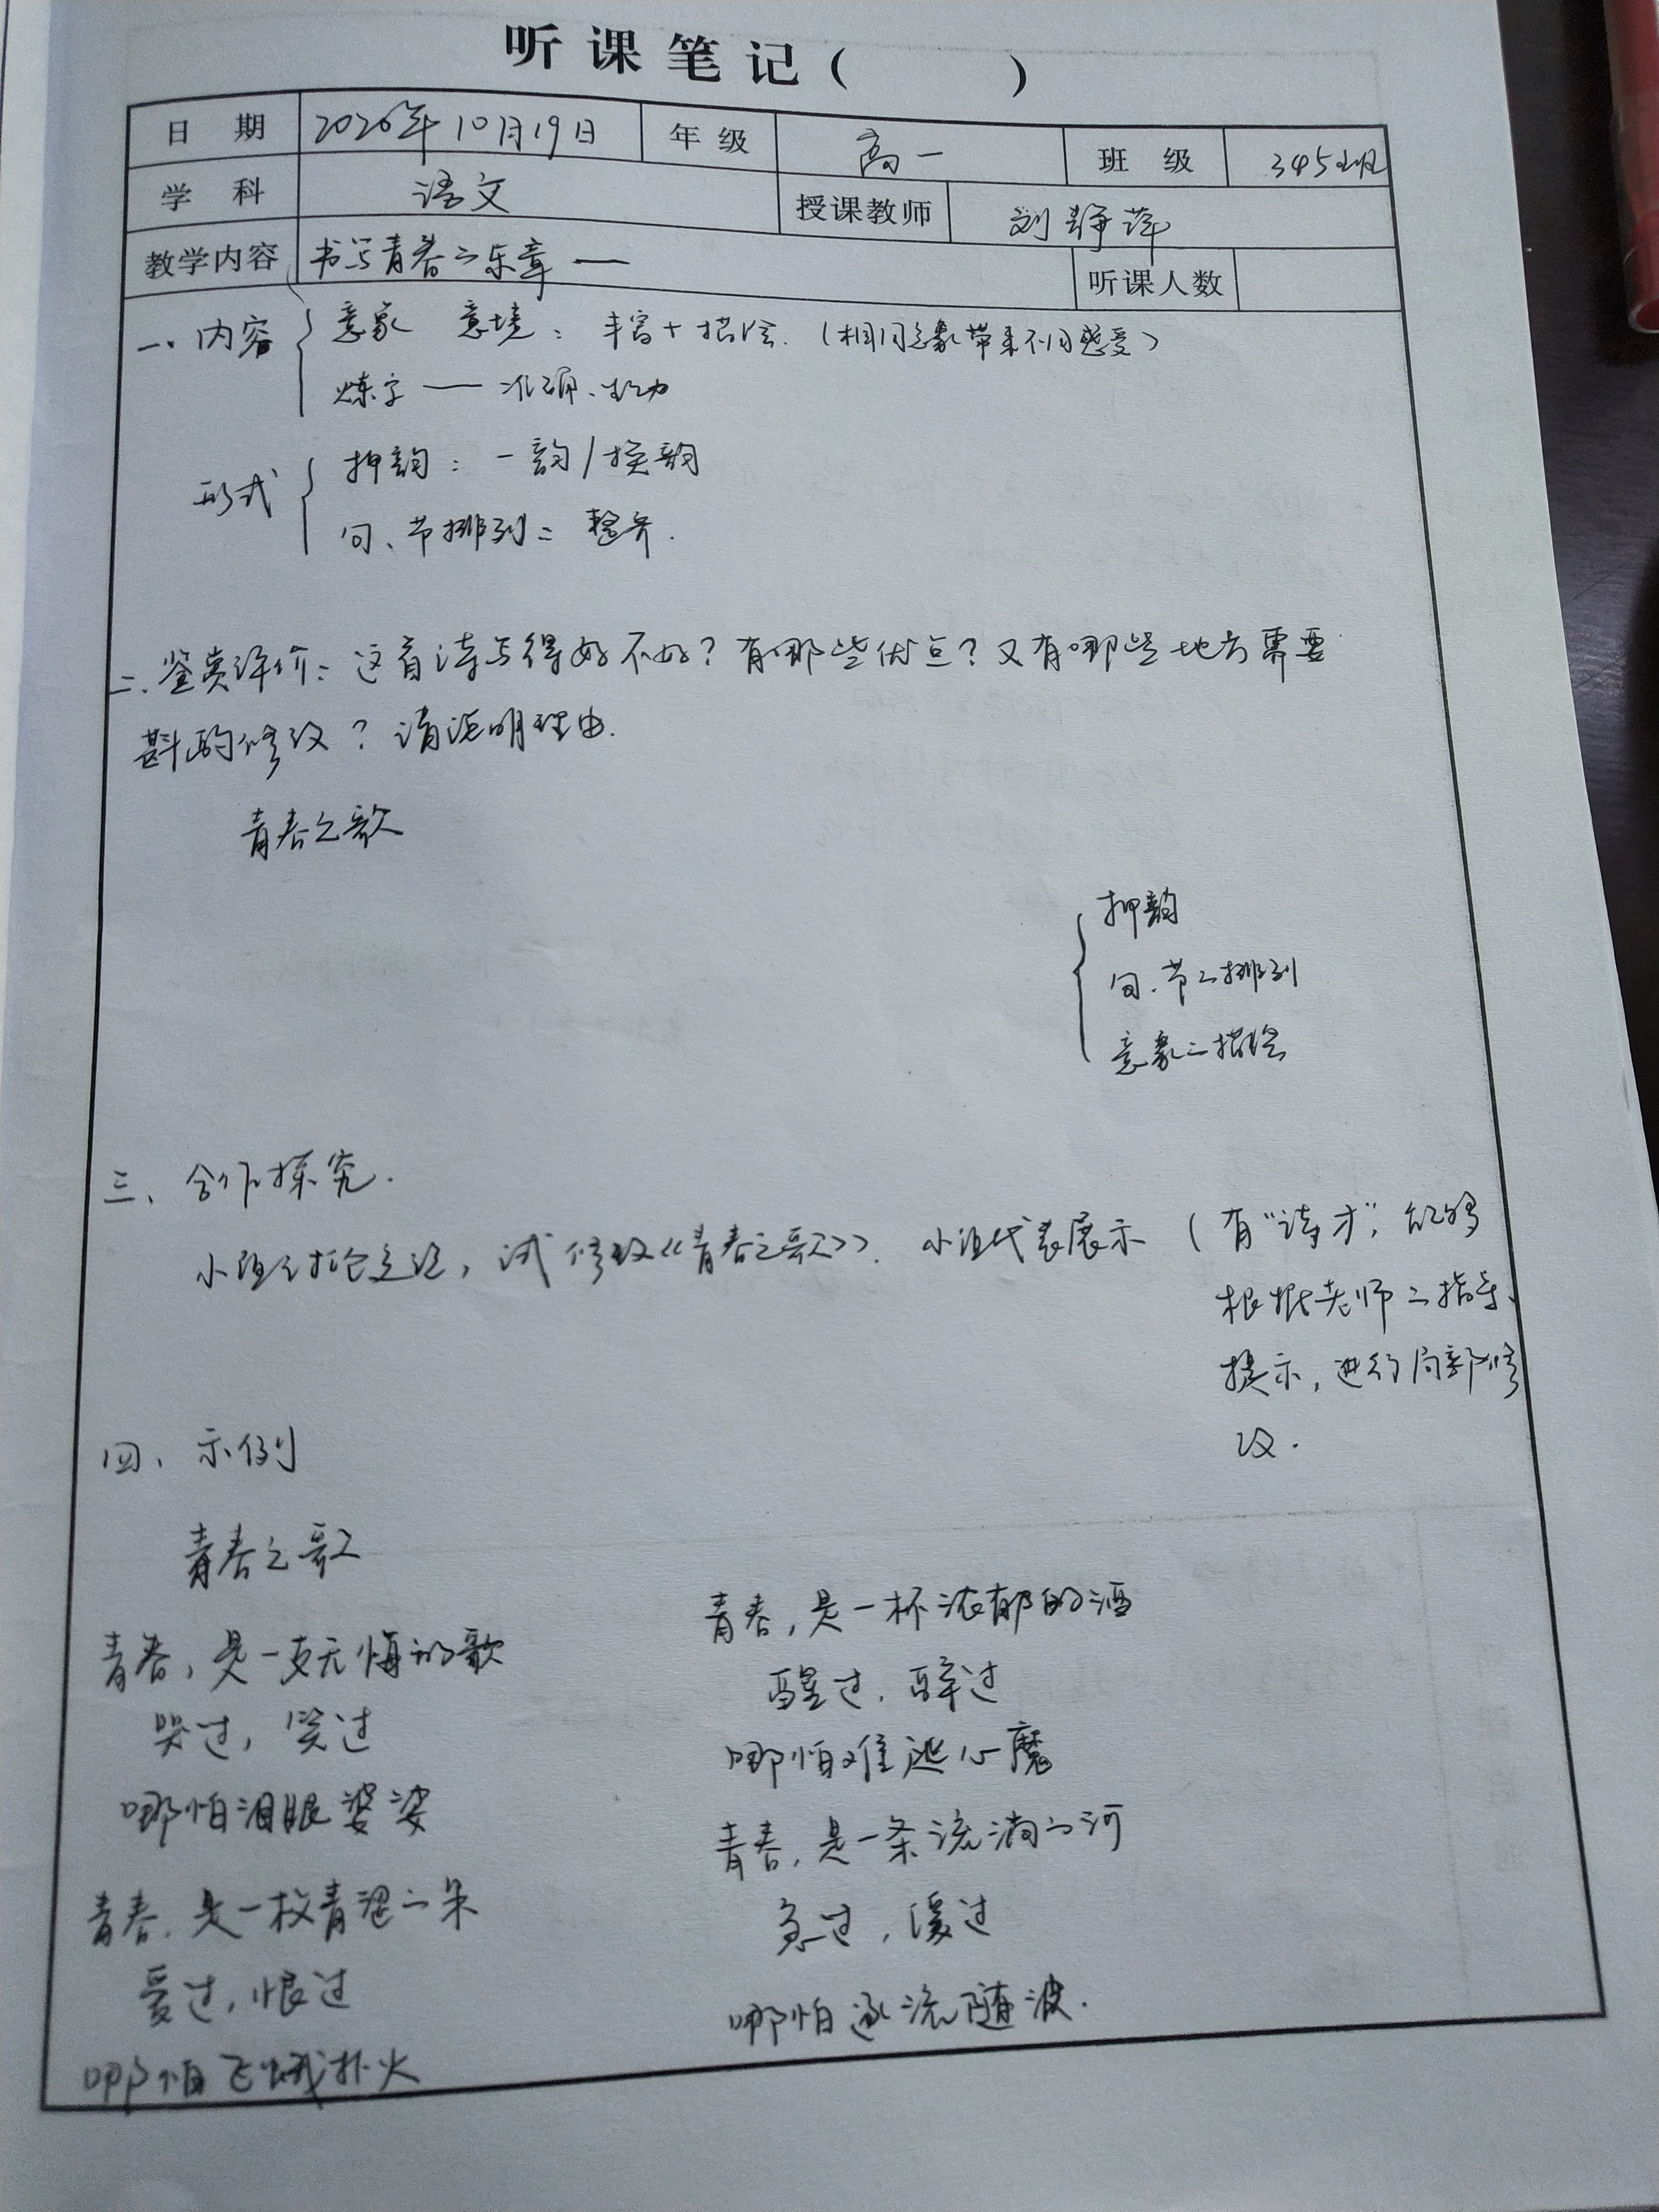 听课笔记（ ）
日 期 2026年10月19日 年 级 高一 班 级 345班
学 科 语文 授课教师 刘静萍
教学内容 书写青春之乐章 — 听课人数
一、内容 { 意象 意境：丰富+描绘.（相同意象带来不同感受）
炼字 — 准确、生动
形式 { 押韵：一韵/换韵
句、节排列：整齐.
二.鉴赏评价：这首诗写得好不好？有哪些优点？又有哪些地方需要
斟酌修改？请说明理由.
青春之歌
{ 押韵
句.节之排列
意象之描绘
三、合作探究.
小组讨论之后，试修改《青春之歌》. 小组代表展示（有“诗才”，能够
根据老师之指导、
提示，进行局部修
改.
四、示例
青春之歌
青春，是一支无悔的歌
哭过，笑过
哪怕泪眼婆娑
青春.是一枚青涩之果
爱过，恨过
哪怕飞蛾扑火
青春，是一杯浓郁的酒
醒过，醉过
哪怕难逃心魔
青春，是一条流淌之河
急过，缓过
哪怕逐流随波.